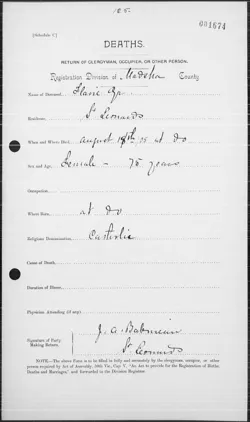 185.
001674
[Schedule C]
DEATHS.
RETURN OF CLERGYMAN, OCCUPIER, OR OTHER PERSON.
Registration Division of Madska County
Name of Deceased,
Residence, St Leonards
When and Where Died, august at do
Sex and Age, Female - 75 years
Occupation,
Where Born, at do
Religious Denomination, Catholic
Cause of Death,
Duration of Illness,
Physician Attending (if any)
Signature of Party Making Return, J. A. Babineau
St Leonards
NOTE.—The above Form is to be filled in fully and accurately by the clergyman, occupier, or other
person required by Act of Assembly, 50th Vic, Cap V, "An Act to provide for the Registration of Births,
Deaths and Marriages," and forwarded to the Division Registrar.